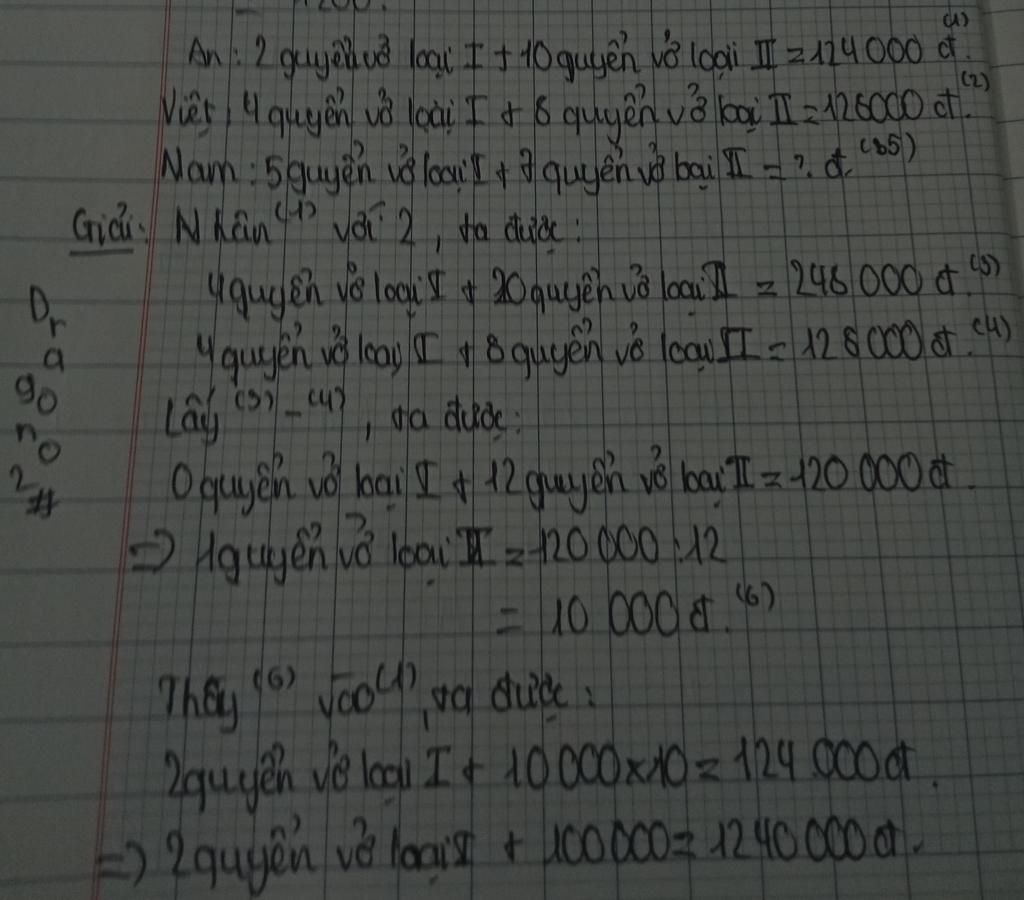 1200.
An: 2 quyển vở loại I + 10 quyển vở loại II = 124 000 đ. (1)
Việt: 4 quyển vở loại I + 8 quyển vở loại II = 128000 đ. (2)
Nam: 5 quyển vở loại I + 7 quyển vở loại II = ? đ. (35)
Giải: Nhân (1) với 2, ta được:
4 quyển vở loại I + 20 quyển vở loại II = 248 000 đ. (3)
4 quyển vở loại I + 8 quyển vở loại II = 128 000 đ. (4)
Lấy (3) - (4), ta được:
0 quyển vở loại I + 12 quyển vở loại II = 120 000 đ.
=> 1 quyển vở loại II = 120 000 : 12
= 10 000 đ. (6)
Thấy (6) vào (1), ta được:
2 quyển vở loại I + 10 000 x 10 = 124 000 đ.
=> 2 quyển vở loại I + 100 000 = 1240 000 đ.
D
r
a
g
o
n
o
2
#